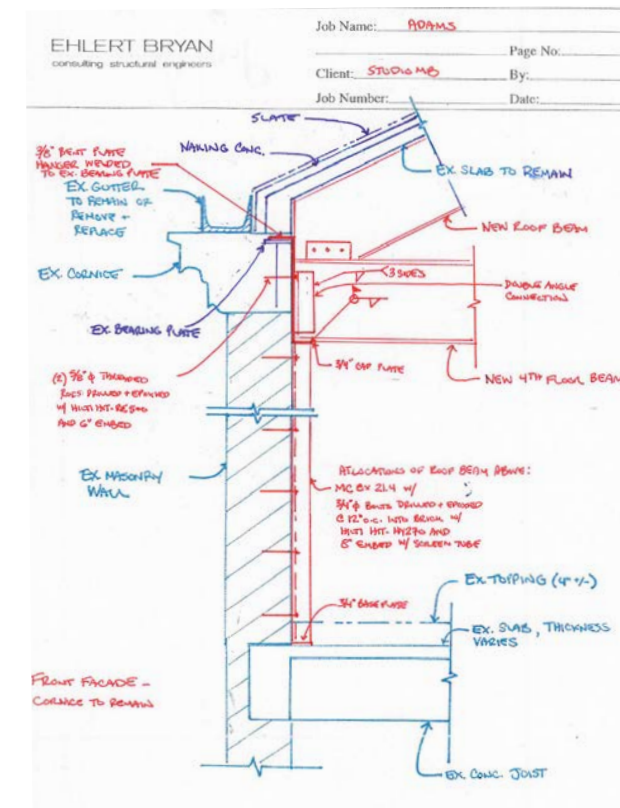 EHLERT BRYAN
consulting structural engineers
Job Name: ADAMS
Page No:
Client: STUDIO MB
By:
Job Number:
Date:
SLATE
NAILING CONC.
3/8" BENT PLATE
HANGER WELDED
TO EX. BEARING PLATE
EX. GUTTER
TO REMAIN OR
REMOVE +
REPLACE
EX. SLAB TO REMAIN
NEW ROOF BEAM
EX. CORNICE
3 SIDES
DOUBLE ANGLE
CONNECTION
EX. BEARING PLATE
3/4" CAP PLATE
NEW 4TH FLOOR BEAM
(2) 5/8" ϕ THREADED
RODS DRILLED + EPOXIED
W/ HILTI HIT-RE500
AND 6" EMBED
EX. MASONRY
WALL
AT LOCATIONS OF ROOF BEAM ABOVE:
MC 8 x 21.4 W/
3/4" ϕ BOLTS DRILLED + EPOXIED
@ 12" O.C. INTO BRICK W/
HILTI HIT-HY270 AND
8" EMBED W/ SCREEN TUBE
3/4" BASE PLATE
EX. TOPPING (4" +/-)
EX. SLAB, THICKNESS
VARIES
FRONT FACADE -
CORNICE TO REMAIN
EX. CONC. JOIST